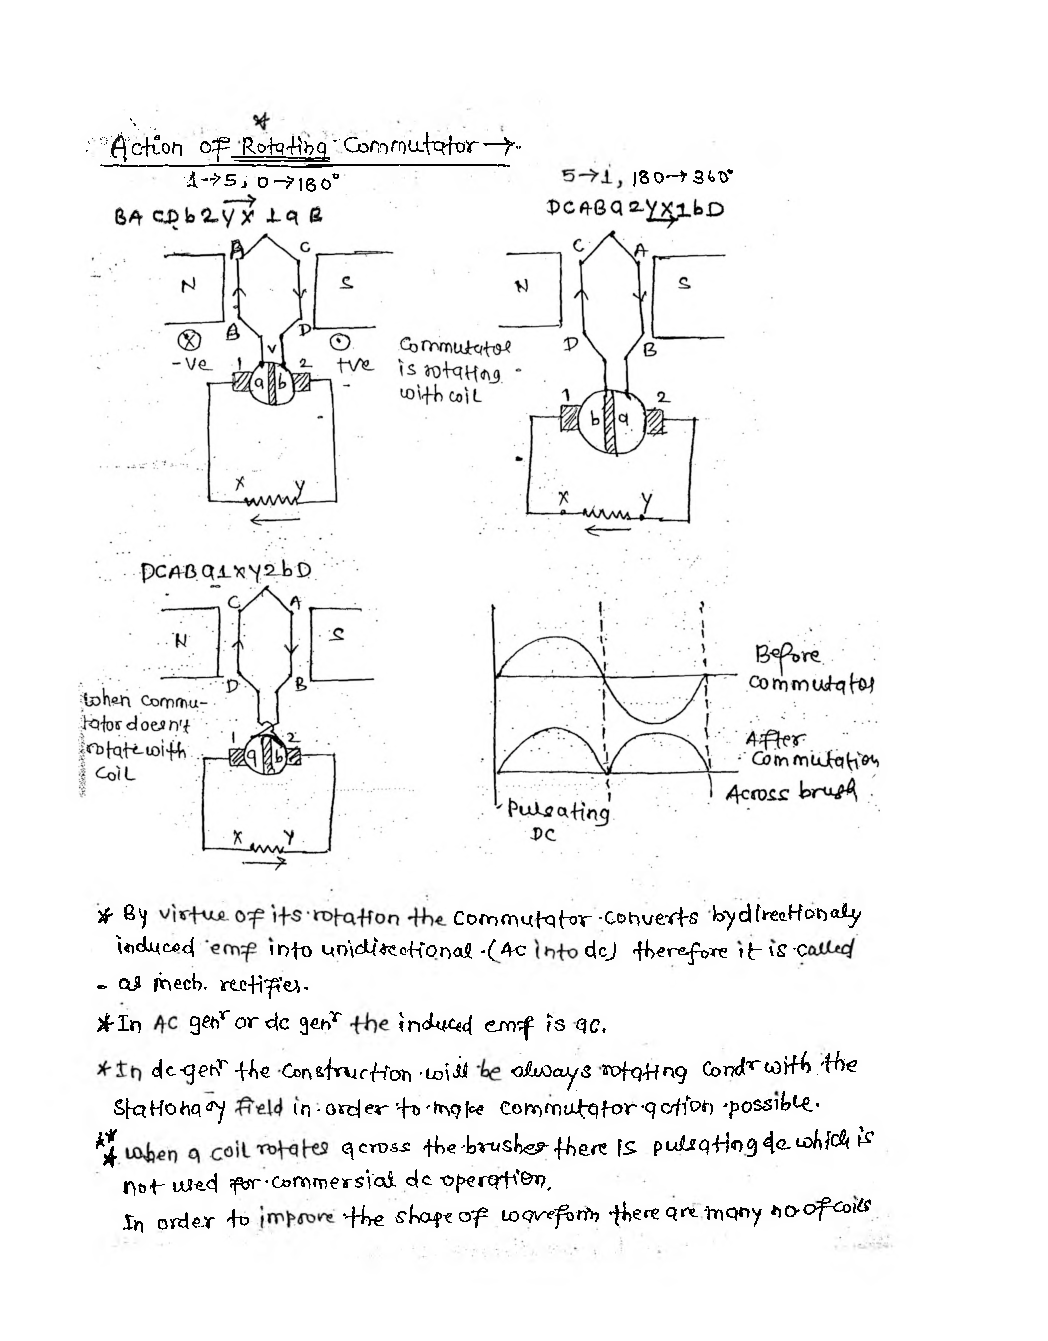 Action of Rotating Commutator →
1→5, 0→180°
BA CD b 2 Y X 1 a B
A C
N S
B D
-ve +ve
V
1 2
a b
X Y
5→1, 180→360°
DCABa2YX1bD
C A
N S
D B
Commutator
is rotating
with coil
1 2
b a
X Y
DCABa1XY2bD
C A
N S
D B
when commu-
tator doesn't
rotate with
coil
1 2
a b
X Y
Before
commutator
After
Commutation
Across brush
Pulsating
DC
* By virtue of its rotation the commutator converts bydirectionaly
induced emf into unidirectional (AC into dc) therefore it is called
as mech. rectifier.
* In AC genr or dc genr the induced emf is ac.
* In dc genr the construction will be always rotating condr with the
stationary field in order to make commutator action possible.
** when a coil rotates across the brushes there is pulsating dc which is
not used for commersial dc operation.
In order to improve the shape of waveform there are many no of coils